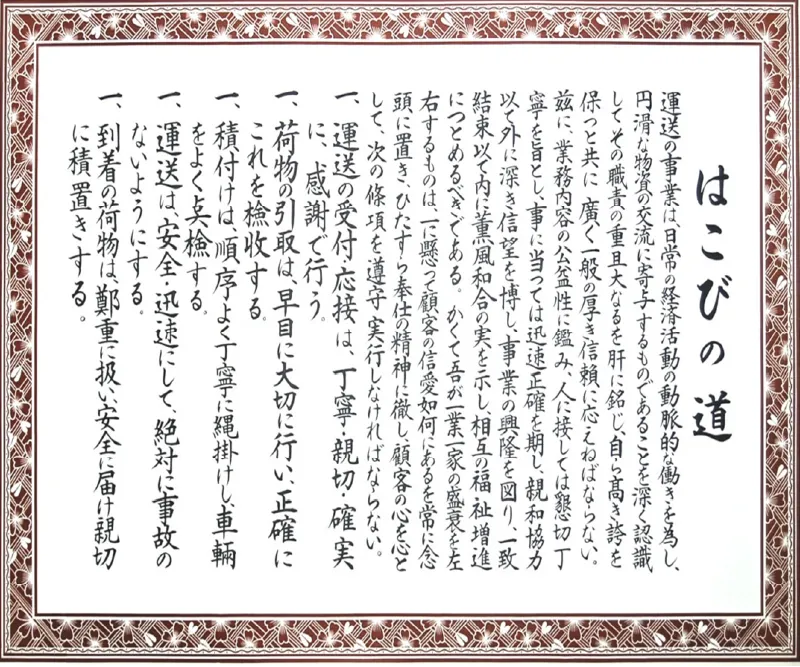 はこびの道
運送の事業は、日常の経済活動の動脈的な働きを為し、
円滑な物資の交流に寄与するものであることを深く認識
してその職責の重且大なるを肝に銘じ、自ら高き誇を
保つと共に 廣く一般の厚き信頼に応えねばならない。
茲に、業務内容の公益性に鑑み、人に接しては懇切丁
寧を旨とし、事に当っては迅速正確を期し、親和協力
以て外に深き信望を博し、事業の興隆を図り、一致
結束以て内に薫風和合の実を示し、相互の福祉増進
につとめるべきである。かくて吾が一業一家の盛衰を左
右するものは、一に懸って顧客の信愛如何にあるを常に念
頭に置き、ひたすら奉仕の精神に徹し、顧客の心を心と
して、次の條項を遵守、実行しなければならない。
一、運送の受付応接は、丁寧・親切・確実
に、感謝で行う。
一、荷物の引取は、早目に大切に行い、正確に
これを検収する。
一、積付けは、順序よく丁寧に縄掛けし、車輌
をよく点検する。
一、運送は、安全・迅速にして、絶対に事故の
ないようにする。
一、到着の荷物は、鄭重に扱い、安全に届け親切
に積置きする。